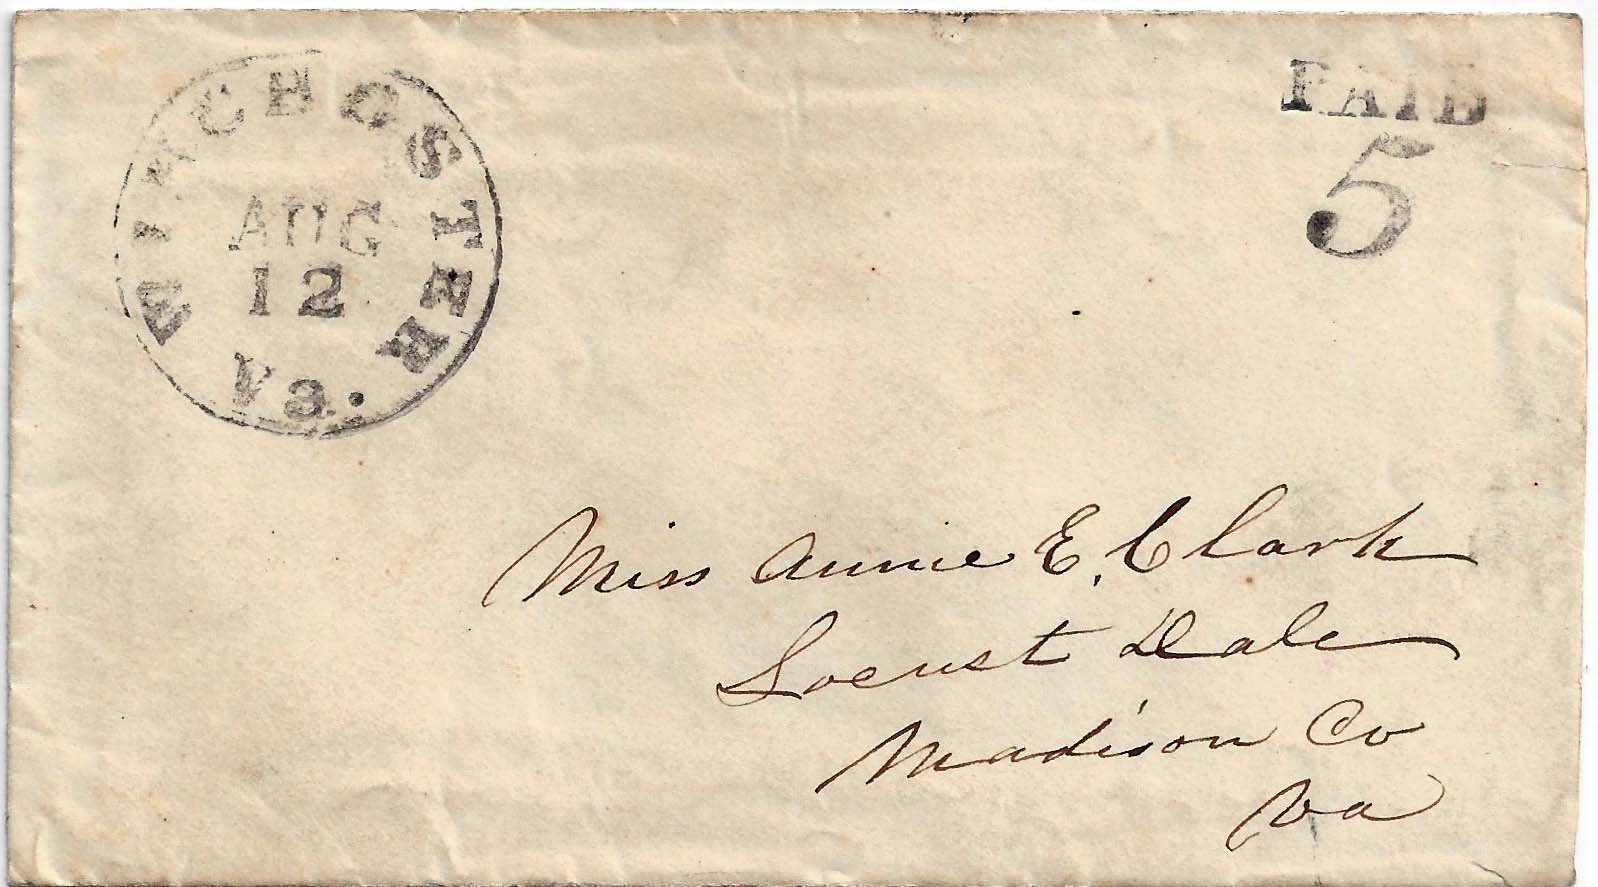 WINCHESTER
AUG
12
Va.
PAID
5
Miss Annie E. Clark
Locust Dale
Madison Co
Va